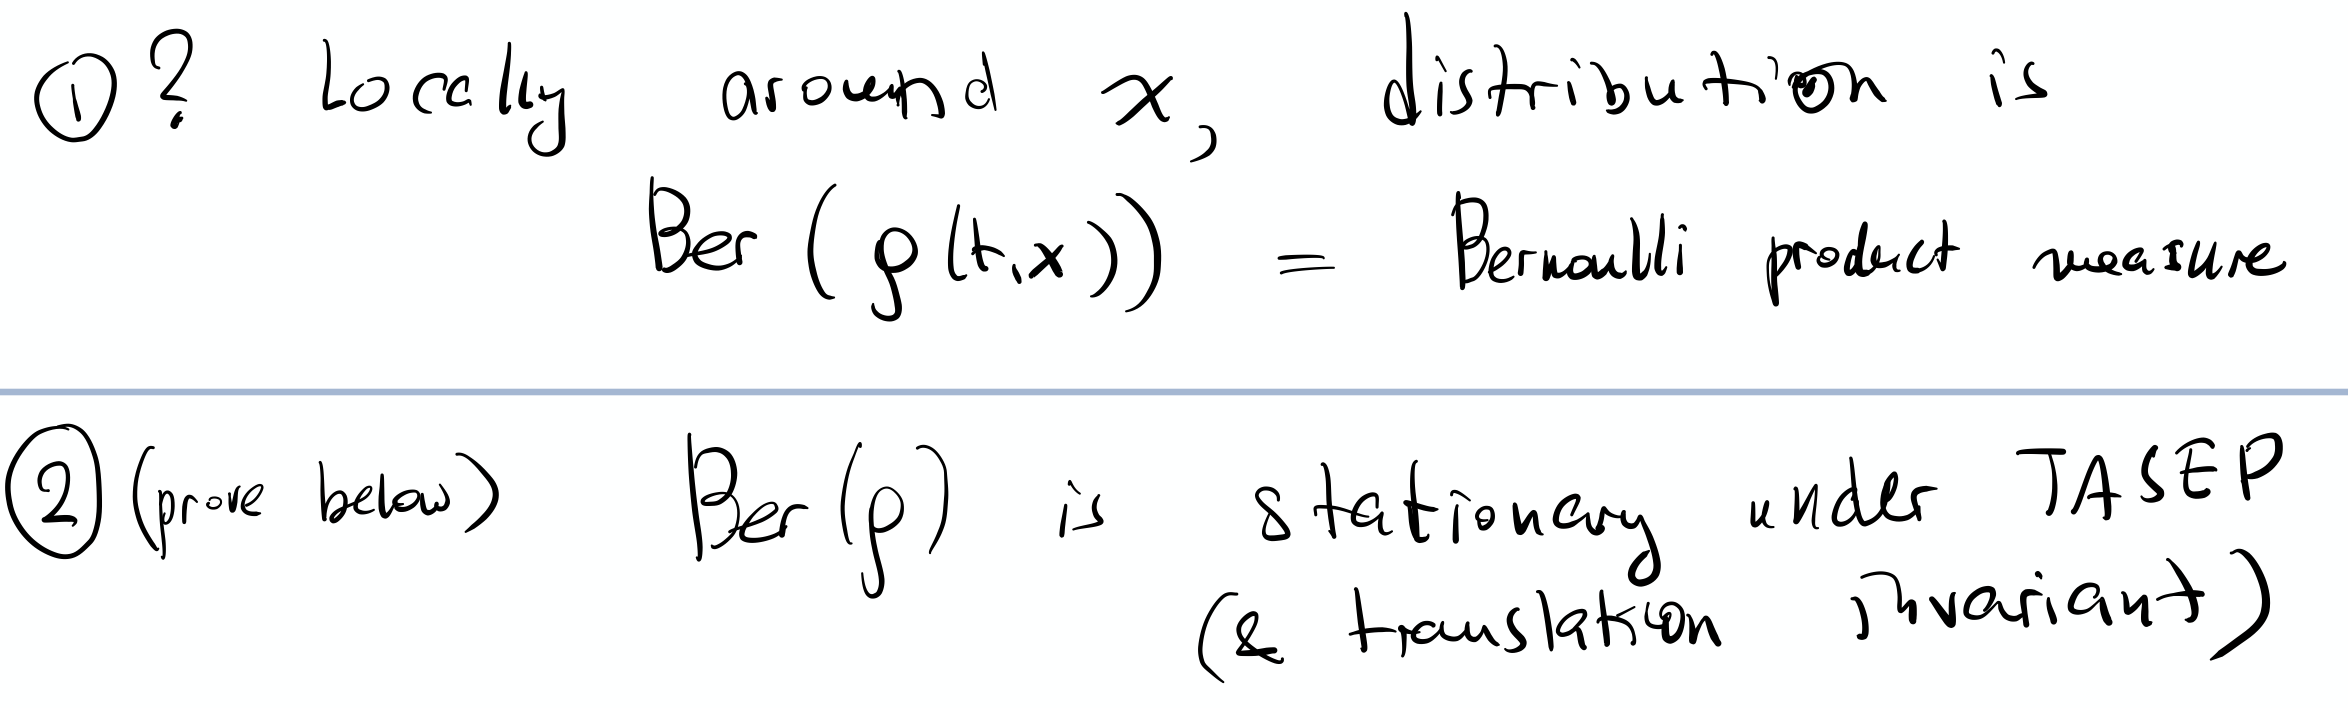 ① ? Locally around x, distribution is
Ber (ρ(t,x)) = Bernoulli product measure
② (prove below) Ber(ρ) is stationary under TASEP
(& translation invariant)